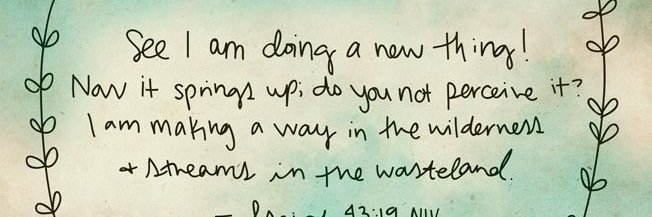 See I am doing a new thing!
Now it springs up; do you not perceive it?
I am making a way in the wilderness
+ streams in the wasteland.
- Isaiah 43:19 NIV